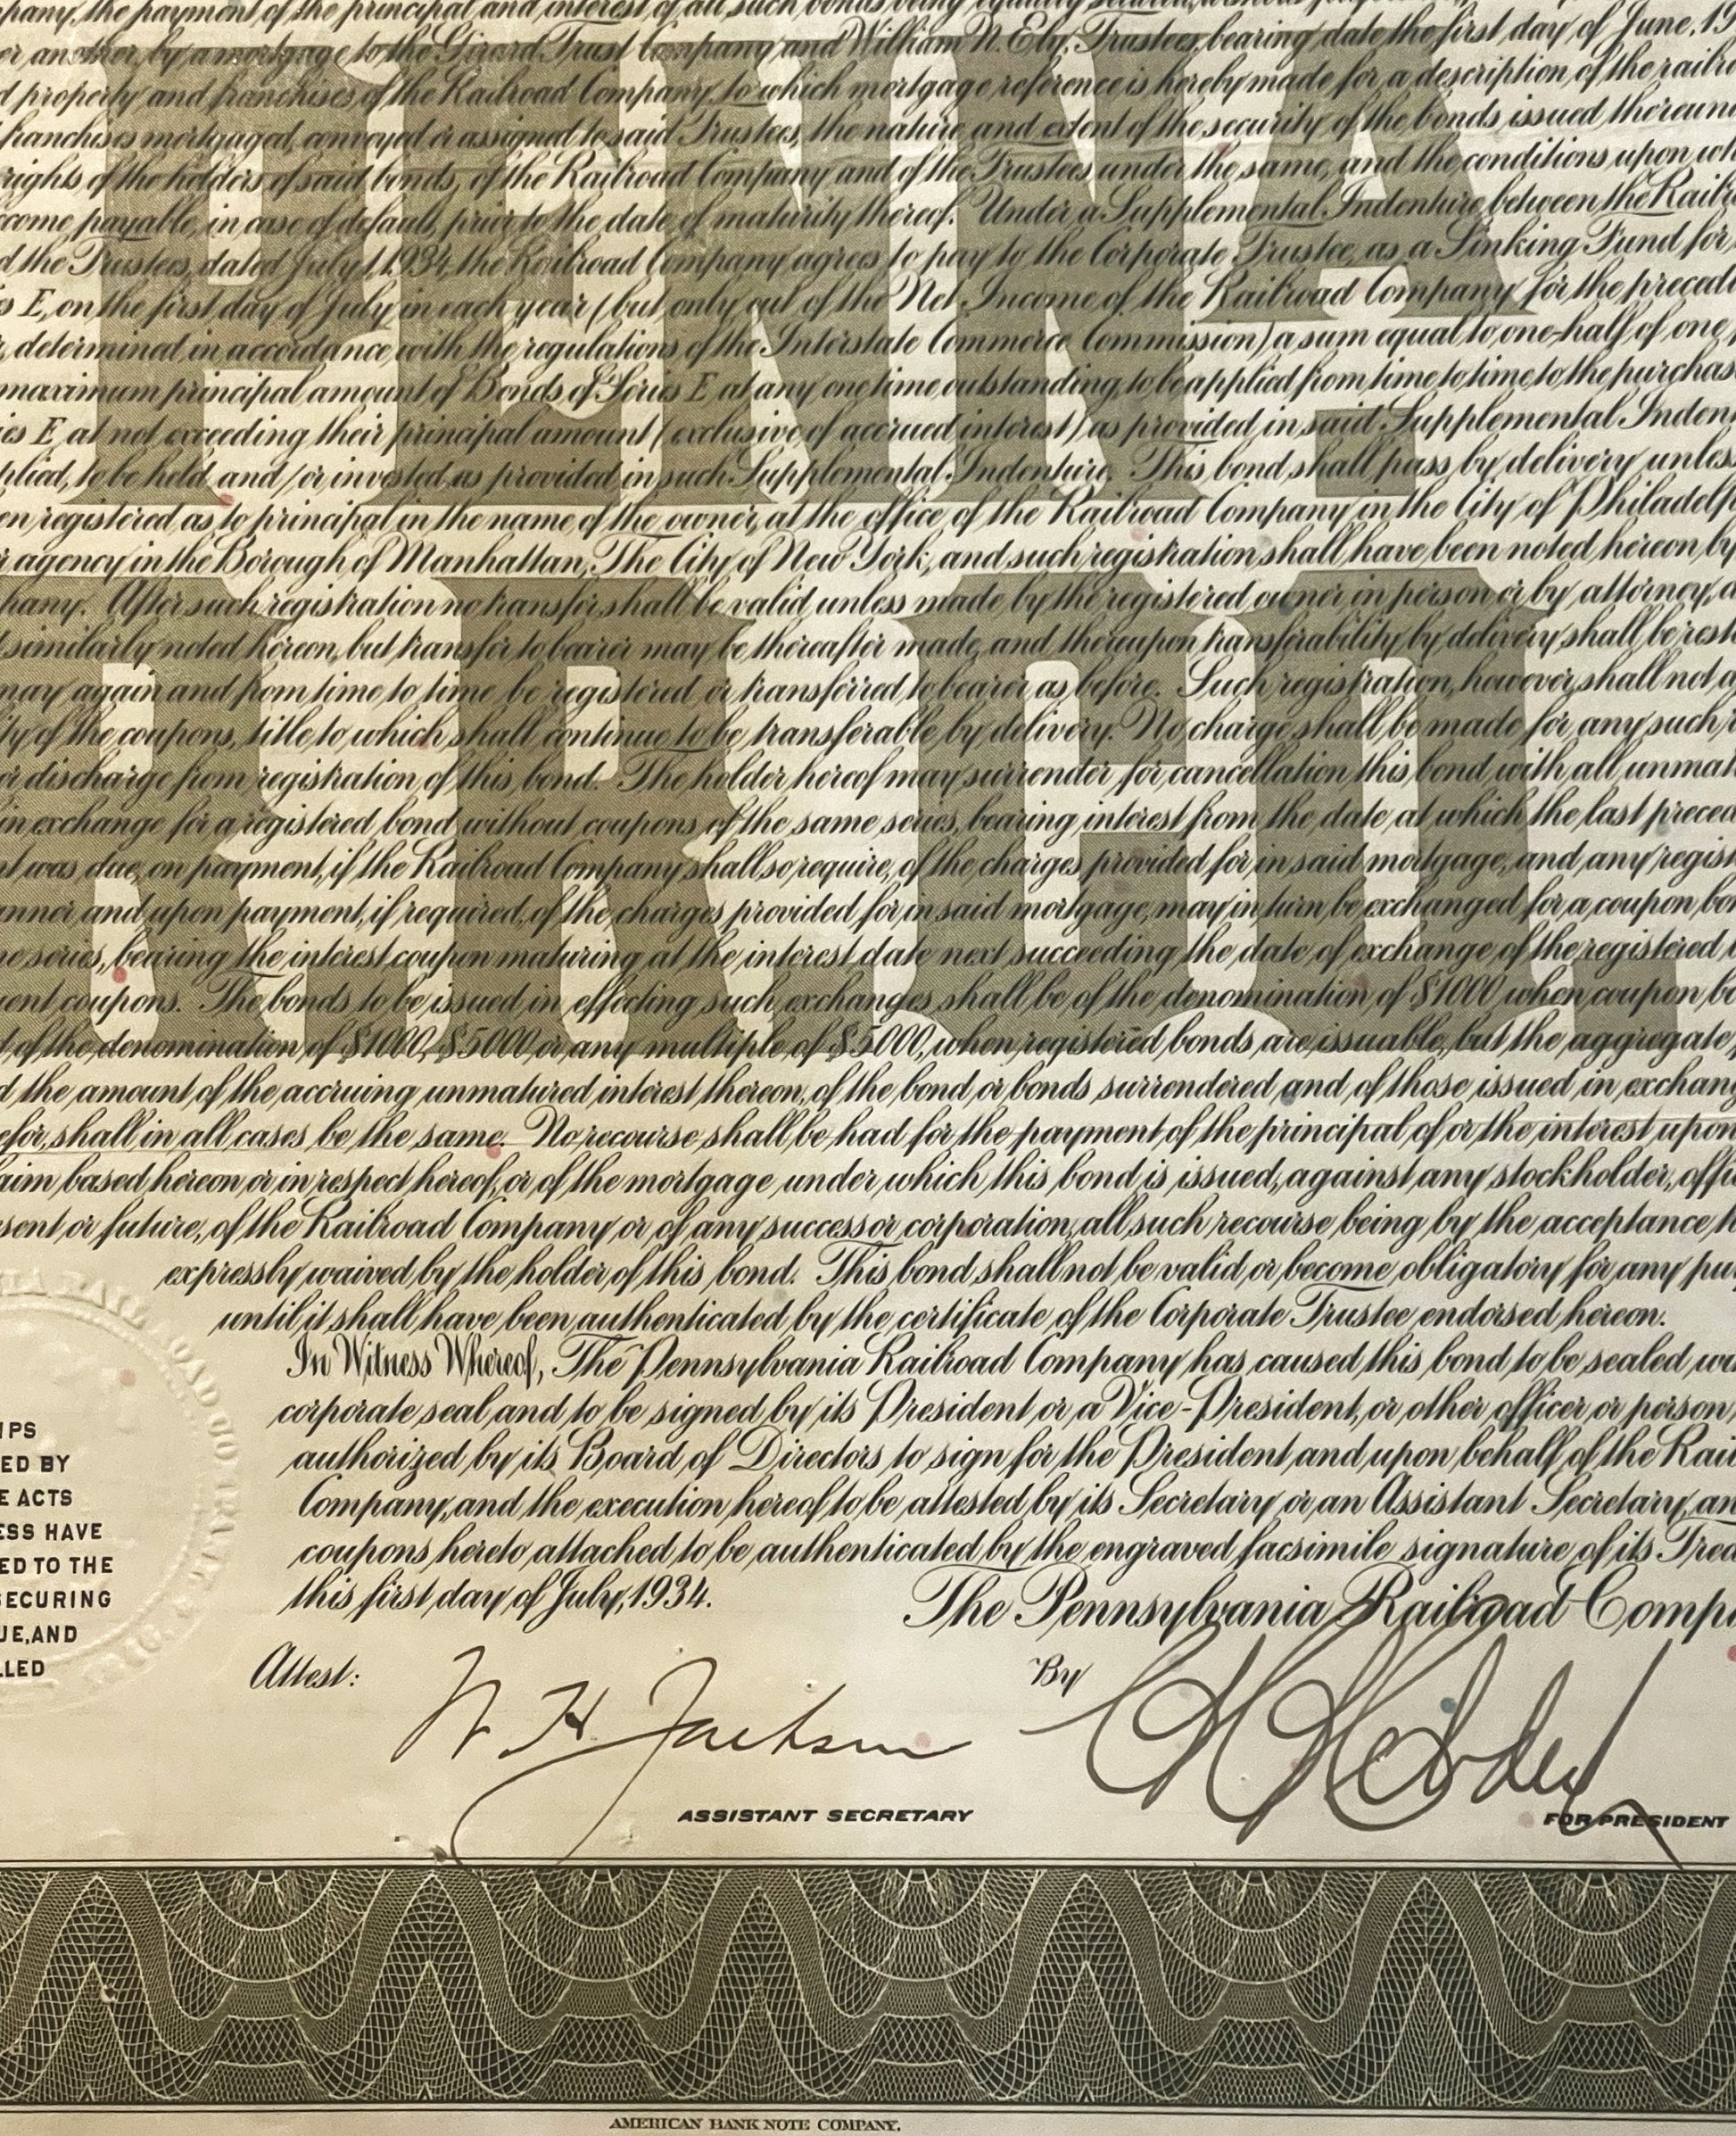 the payment of the principal and interest of all such bonds being equally secured, without
another, by a mortgage to the Girard Trust Company and William N. Ely, Trustees, bearing date the first day of June, 19
d property and franchises of the Railroad Company, to which mortgage reference is hereby made for a description of the railro
franchises mortgaged, conveyed or assigned to said Trustees, the nature and extent of the security of the bonds issued thereun
rights of the holders of said bonds, of the Railroad Company and of the Trustees under the same, and the conditions upon wh
come payable, in case of default, prior to the date of maturity thereof. Under a Supplemental Indenture between the Railr
d the Trustees, dated July 1, 1934, the Railroad Company agrees to pay to the Corporate Trustee, as a Sinking Fund for
s E, on the first day of July in each year (but only out of the Net Income of the Railroad Company for the precedi
, determined in accordance with the regulations of the Interstate Commerce Commission) a sum equal to one-half of one
maximum principal amount of Bonds of Series E at any one time outstanding, to be applied from time to time to the purchas
ies E at not exceeding their principal amount (exclusive of accrued interest) as provided in said Supplemental Inden
plied, to be held and/or invested as provided in such Supplemental Indenture. This bond shall pass by delivery unless
en registered as to principal in the name of the owner, at the office of the Railroad Company in the City of Philadelp
r agency in the Borough of Manhattan, The City of New York, and such registration shall have been noted hereon by
pany. After such registration no transfer shall be valid unless made by the registered owner in person or by attorney, a
similarly noted hereon, but transfer to bearer may be thereafter made, and thereupon transferability by delivery shall be rest
may again and from time to time be registered or transferred to bearer as before. Such registration, however, shall not a
ty of the coupons, title to which shall continue to be transferable by delivery. No charge shall be made for any such, r
or discharge from registration of this bond. The holder hereof may surrender for cancellation this bond with all unmat
in exchange for a registered bond without coupons of the same series, bearing interest from the date at which the last preced
nt was due, on payment, if the Railroad Company shall so require, of the charges provided for in said mortgage, and any regist
anner and upon payment, if required, of the charges provided for in said mortgage, may in turn be exchanged for a coupon bon
me series, bearing the interest coupon maturing at the interest date next succeeding the date of exchange of the registered
uent coupons. The bonds to be issued in effecting such exchanges shall be of the denomination of $1000 when coupon bo
d of the denomination of $1000, $5000 or any multiple of $5000, when registered bonds are issuable, but the aggregate,
d the amount of the accruing unmatured interest thereon, of the bond or bonds surrendered and of those issued in exchang
efor, shall in all cases be the same. No recourse shall be had for the payment of the principal of or the interest upon
aim based hereon or in respect hereof, or of the mortgage under which this bond is issued, against any stockholder, offic
sent or future, of the Railroad Company or of any successor corporation, all such recourse being by the acceptance h
expressly waived by the holder of this bond. This bond shall not be valid or become obligatory for any pur
until it shall have been authenticated by the certificate of the Corporate Trustee endorsed hereon.
In Witness Whereof, The Pennsylvania Railroad Company has caused this bond to be sealed wi
corporate seal and to be signed by its President or a Vice-President, or other officer or person,
authorized by its Board of Directors to sign for the President and upon behalf of the Rail
Company, and the execution hereof to be attested by its Secretary or an Assistant Secretary, an
coupons hereto attached to be authenticated by the engraved facsimile signature of its Trea
this first day of July, 1934.
The Pennsylvania Railroad Comp
PENNA
RR CO.
RAILROAD CO
IPS
ED BY
E ACTS
ESS HAVE
ED TO THE
SECURING
UE, AND
LLED
Attest:
H Jackson
ASSISTANT SECRETARY
By
FOR PRESIDENT
AMERICAN BANK NOTE COMPANY.